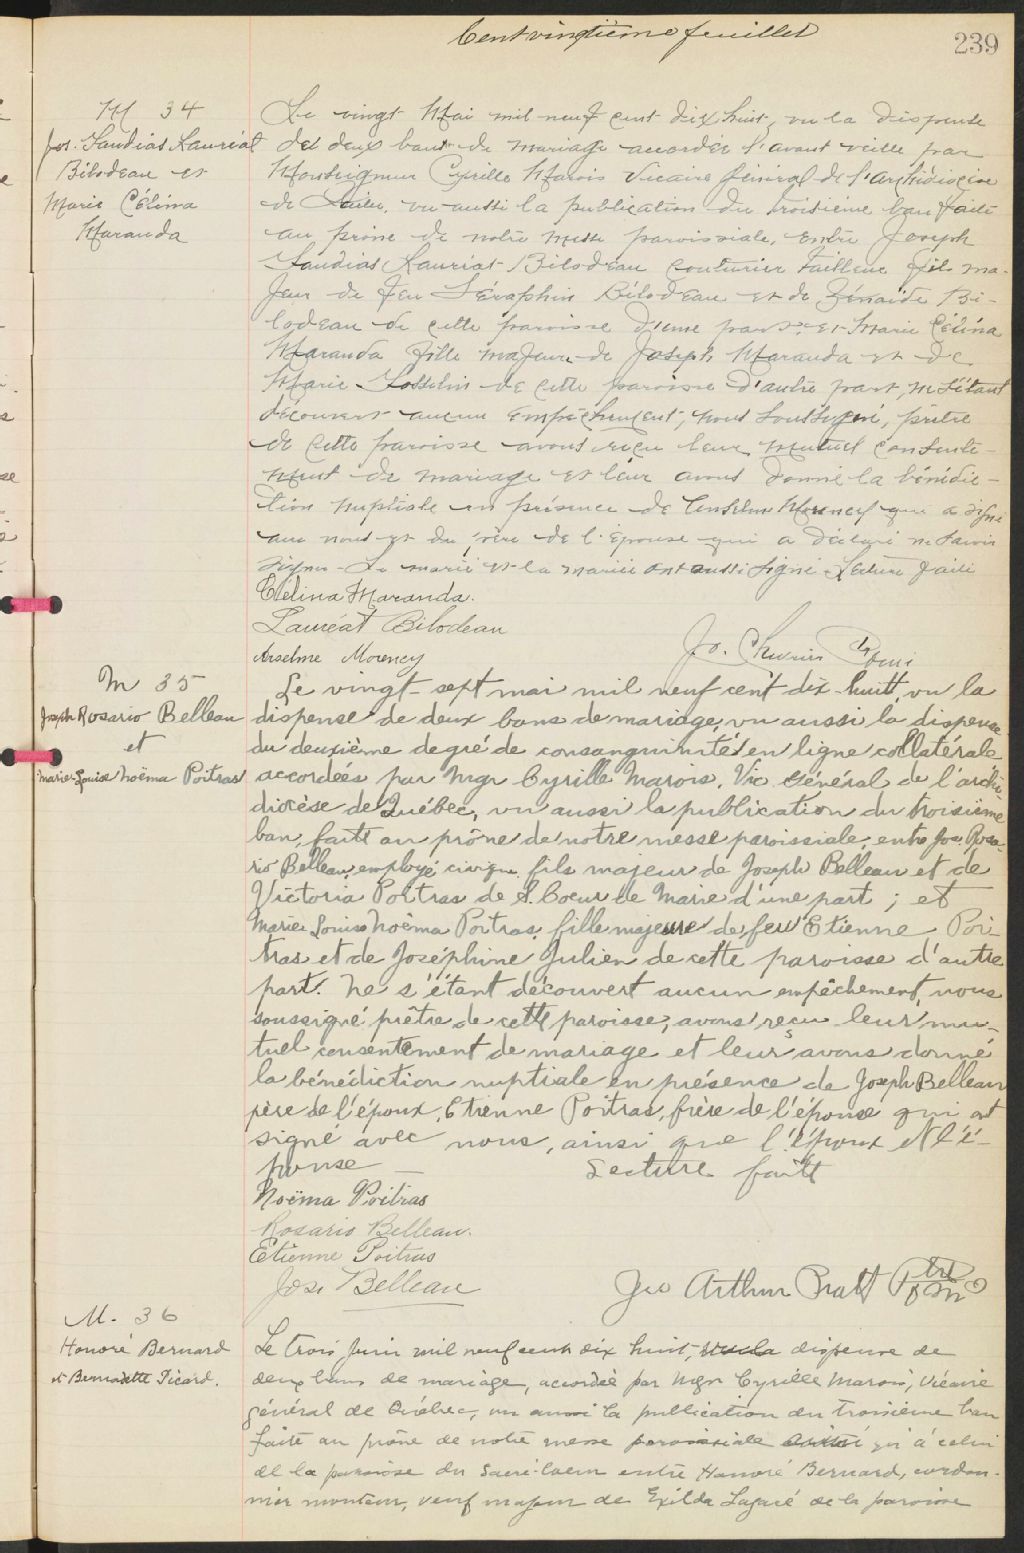 Cent vingtième feuillet
239
M 34
Jos. Laudias Lauréat
Bilodeau et
Marie Célina
Maranda
Le vingt Mai mil neuf cent dix huit, vu la dispense
des deux bans de mariage accordée l'avant veille par
Monseigneur Cyrille Marois Vicaire Général de l'archidiocèse
de Québec, vu aussi la publication du troisième ban faite
au prône de notre messe paroissiale, entre Joseph
Laudias Lauréat Bilodeau couturier tailleur fils ma-
jeur de feu Séraphin Bilodeau et de Zénaïde Bi-
lodeau de cette paroisse d'une part; et Marie Célina
Maranda fille majeure de Joseph Maranda et de
Marie Josselin de cette paroisse d'autre part, ne s'étant
découvert aucun empêchement, nous soussigné, prêtre
de cette paroisse avons reçu leur mutuel consente-
ment de mariage et leur avons donné la bénédic-
tion nuptiale en présence de Anselme Morency qui a signé
avec nous et du père de l'épouse qui a déclaré ne savoir
signer. Le marié et la mariée ont aussi signé. Lecture faite
Célina Maranda.
Lauréat Bilodeau
Anselme Morency
Jo.
M 35
Joseph Rosario Belleau
et
Marie-Louise Noëma Poitras
Le vingt-sept mai mil neuf cent dix-huitt, vu la
dispense de deux bans de mariage, vu aussi la dispense
du deuxième degré de consanguinité en ligne collatérale,
accordées par Mgr Cyrille Marois, Vic Général de l'archi-
diocèse de Québec, vu aussi la publication du troisième
ban, faite au prône de notre messe paroissiale, entre Jos. Rosa-
rio Belleau, employé civique fils majeur de Joseph Belleau et de
Victoria Poitras de S. Coeur de Marie d'une part; et
Marie Louise Noëma Poitras, fille majeure de feu Etienne Poi-
tras et de Joséphine Julien de cette paroisse d'autre
part. Ne s'étant découvert aucun empêchement, nous
soussigné prêtre de cette paroisse, avons reçu leur mu-
tuel consentement de mariage et leurs avons donné
la bénédiction nuptiale en présence de Joseph Belleau
père de l'époux, Etienne Poitras, frère de l'épouse qui ont
signé avec nous, ainsi que l'époux et l'é-
pouse — Lecture faite
Noëma Poitras
Rosario Belleau.
Etienne Poitras
Jos Belleau
Geo Arthur Pratt Ptre
M. 36
Honoré Bernard
et Bernadette Picard.
Le trois Juin mil neuf cent dix huit, vu la dispense de
deux bans de mariage, accordée par Mgr Cyrille Marois, Vicaire
général de Québec, vu aussi la publication du troisième ban
faite au prône de notre messe paroissiale qu'à celui
de la paroisse du Sacré-Coeur entre Honoré Bernard, cordon-
nier monteur, veuf majeur de Exilda Lagacé de la paroisse